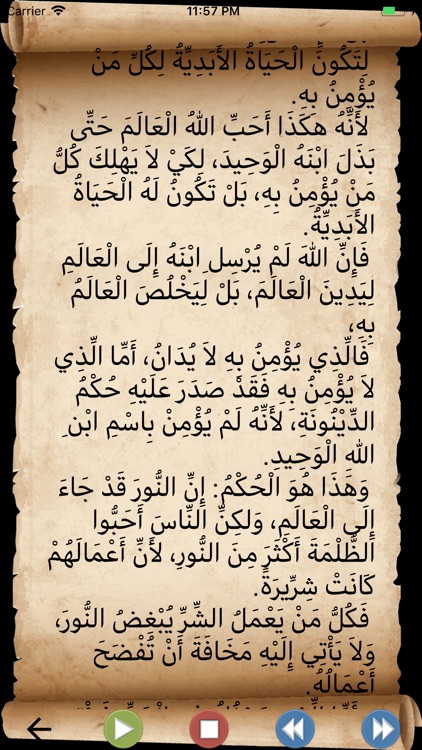 Carrier 11:57 PM
لِتَكُونَ الْحَيَاةُ الأَبَدِيَّةُ لِكُلِّ مَنْ
يُؤْمِنُ بِهِ.
لأَنَّهُ هكَذَا أَحَبَّ اللهُ الْعَالَمَ حَتَّى
بَذَلَ ابْنَهُ الْوَحِيدَ، لِكَيْ لاَ يَهْلِكَ كُلُّ
مَنْ يُؤْمِنُ بِهِ، بَلْ تَكُونُ لَهُ الْحَيَاةُ
الأَبَدِيَّةُ.
فَإِنَّ اللهَ لَمْ يُرْسِلِ ابْنَهُ إِلَى الْعَالَمِ
لِيَدِينَ الْعَالَمَ، بَلْ لِيَخْلُصَ الْعَالَمُ
بِهِ،
فَالَّذِي يُؤْمِنُ بِهِ لاَ يُدَانُ، أَمَّا الَّذِي
لاَ يُؤْمِنُ بِهِ فَقَدْ صَدَرَ عَلَيْهِ حُكْمُ
الدَّيْنُونَةِ، لأَنَّهُ لَمْ يُؤْمِنْ بِاسْمِ ابْنِ
اللهِ الْوَحِيدِ.
وَهَذَا هُوَ الْحُكْمُ: إِنَّ النُّورَ قَدْ جَاءَ
إِلَى الْعَالَمِ، وَلكِنَّ النَّاسَ أَحَبُّوا
الظُّلْمَةَ أَكْثَرَ مِنَ النُّورِ، لأَنَّ أَعْمَالَهُمْ
كَانَتْ شِرِّيرَةً.
فَكُلُّ مَنْ يَعْمَلُ الشَّرَّ يُبْغِضُ النُّورَ،
وَلاَ يَأْتِي إِلَيْهِ مَخَافَةَ أَنْ تُفْضَحَ
أَعْمَالُهُ.